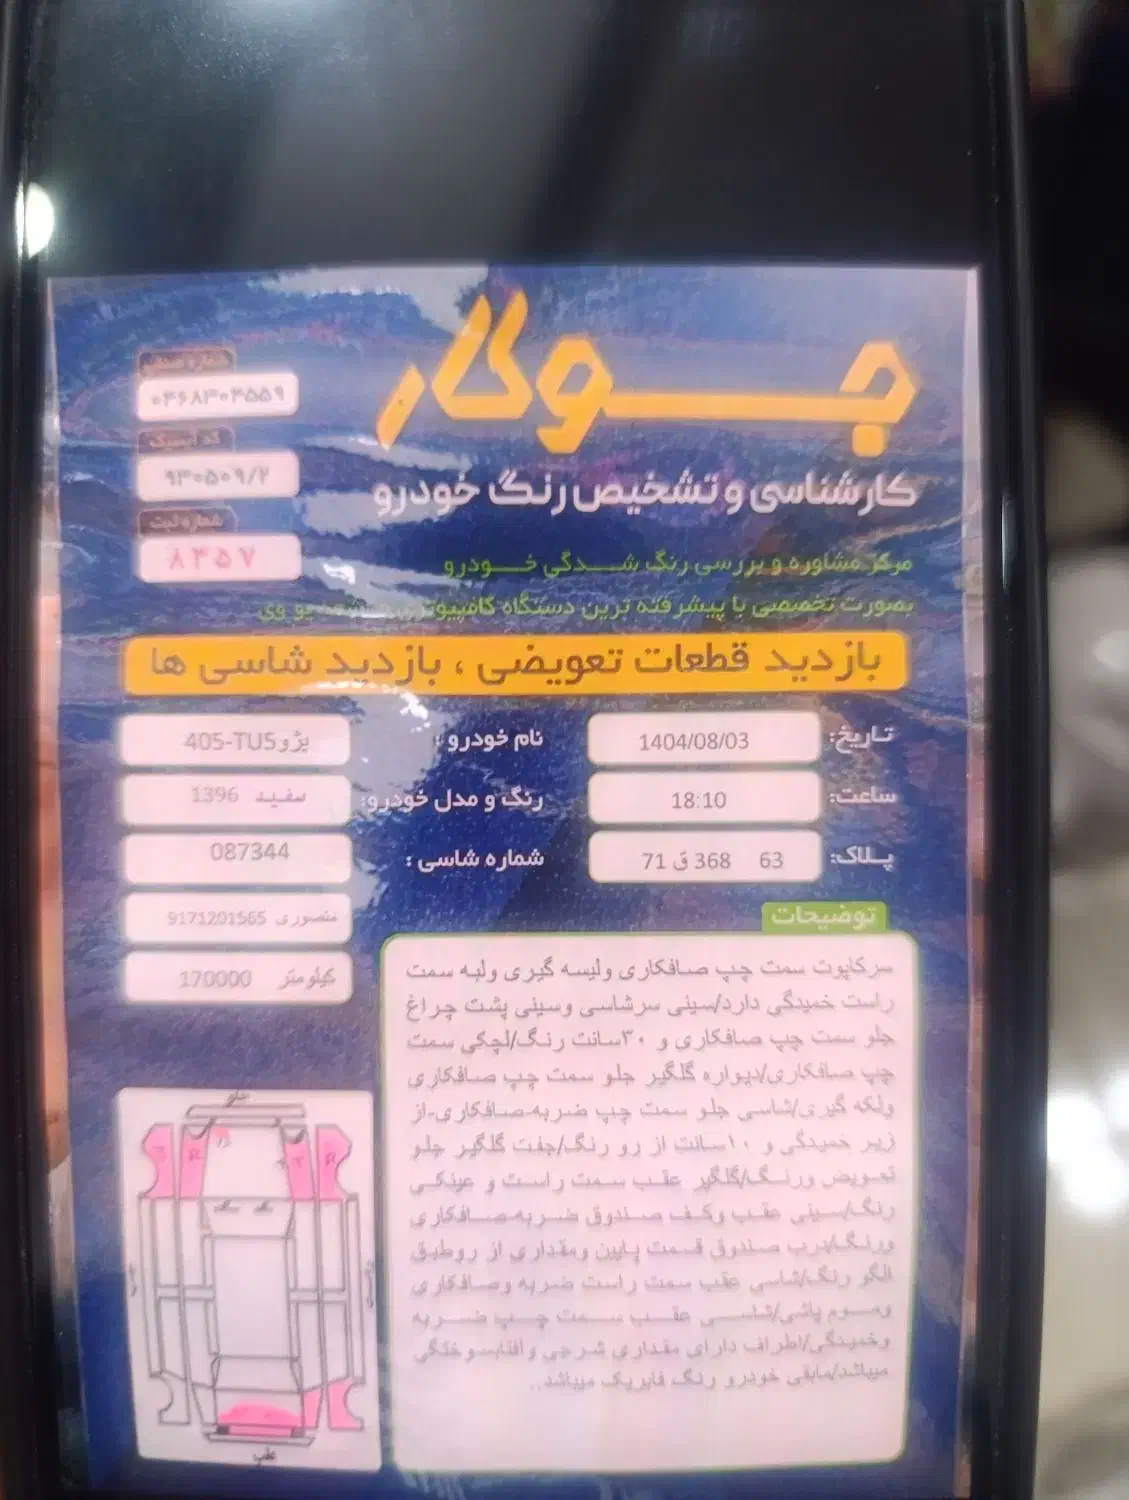 جوکار
کارشناسی و تشخیص رنگ خودرو
مرکز مشاوره و بررسی رنگ شدگی خودرو
بصورت تخصصی با پیشرفته ترین دستگاه کامپیوتری یو وی
بازدید قطعات تعویضی ، بازدید شاسی ها
شماره صنفی
۰۴۶۸۳۰۴۵۵۹
کد ایسیک
۹۳۰۵۰۹/۲
شماره ثبت
۸۴۵۷
تاریخ: 1404/08/03
ساعت: 18:10
پلاک: 63 368 ق 71
نام خودرو : پژو 405-TU5
رنگ و مدل خودرو: سفید 1396
شماره شاسی : 087344
منصوری 9171201565
کیلومتر 170000
توضیحات
سرکاپوت سمت چپ صافکاری ولیسه گیری ولبه سمت
راست خمیدگی دارد/سینی سرشاسی وسینی پشت چراغ
جلو سمت چپ صافکاری و ۳۰سانت رنگ/لچکی سمت
چپ صافکاری/دیواره گلگیر جلو سمت چپ صافکاری
ولکه گیری/شاسی جلو سمت چپ ضربه-صافکاری-از
زیر خمیدگی و ۱۰سانت از رو رنگ/جفت گلگیر جلو
تعویض ورنگ/گلگیر عقب سمت راست و عینکی
رنگ/سینی عقب وکف صندوق ضربه-صافکاری
ورنگ/درب صندوق قسمت پایین ومقداری از روطبق
الگو رنگ/شاسی عقب سمت راست ضربه وصافکاری
وموم پاشی/شاسی عقب سمت چپ ضربه
وخمیدگی/اطراف دارای مقداری شرجی وافتابسوختگی
میباشد/مابقی خودرو رنگ فابریک میباشد..
جلو
عقب